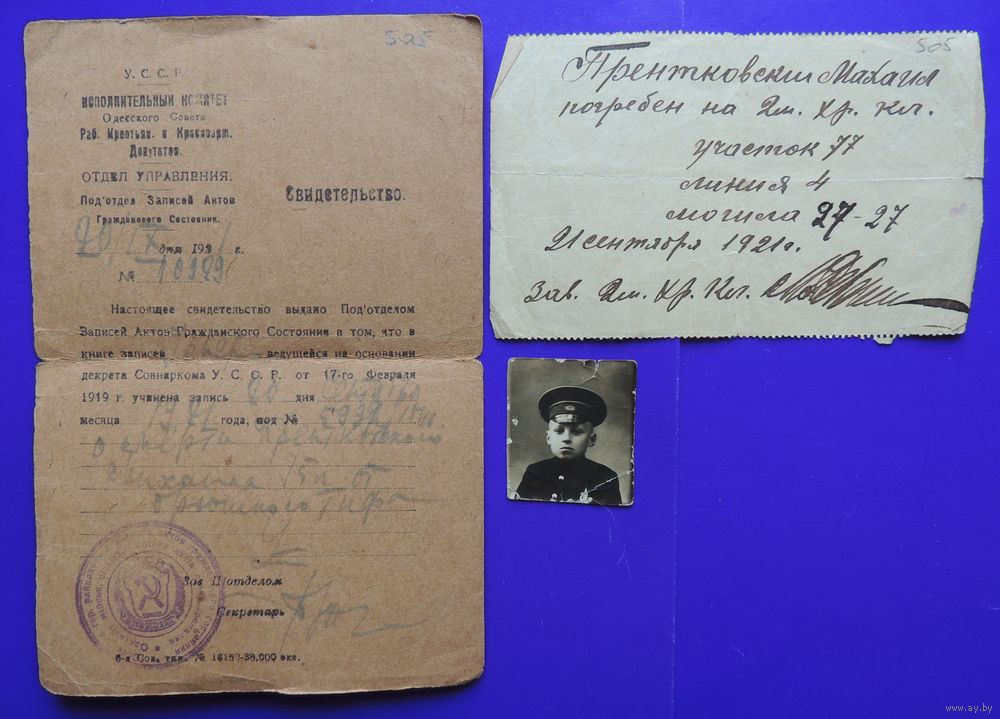 5-25
У. С. С. Р.
ИСПОЛНИТЕЛЬНЫЙ КОМИТЕТ
Одесского Совета
Раб. Крестьян. и Красноарм.
Депутатов.
ОТДЕЛ УПРАВЛЕНИЯ.
Под'отдел Записей Актов
Гражданского Состояния.
20/IX дня 1921 г.
№ 10989
Свидетельство.
Настоящее свидетельство выдано Под'отделом
Записей Актов Гражданского Состояния в том, что в
книге записей ведущейся на основании
декрета Совнаркома У. С. С. Р. от 17-го Февраля
1919 г. учинена запись 20 дня сентября
месяца 1921 года, под №
о смерти Прентковского
Михаила 15 л от
брюшного тифа
Зав. П/отделом
Секретарь
6-я Сов. тип. № 16150-38.000 экз.
505
Прентковский Михаил
погребен на 2м. хр. кл.
участок 77
линия 4
могила 27-27
21 сентября 1921 г.
Зав. 2м. хр. Кл.
www.ay.by